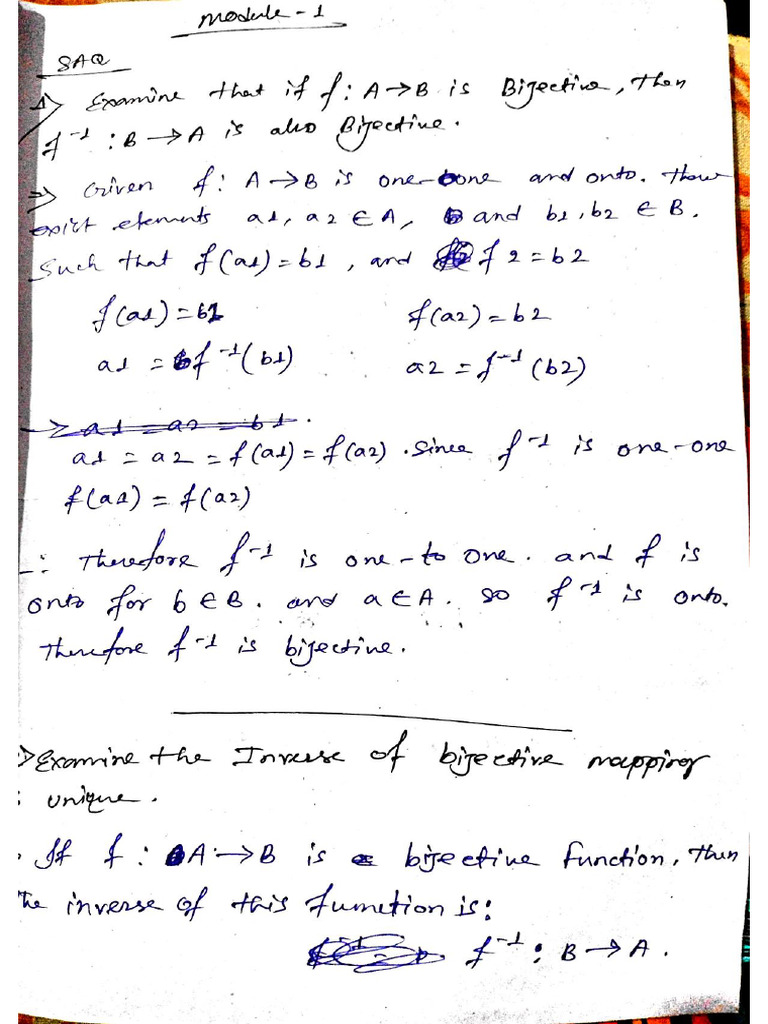 Module - 1
SAQ
1> Examine that if f : A → B is Bijective, then
f⁻¹ : B → A is also Bijective.
=> Given f : A → B is one-one and onto. Their
exist elements a1, a2 ∈ A, and b1, b2 ∈ B.
Such that f(a1) = b1, and f 2 = b2
f(a1) = b1 f(a2) = b2
a1 = f⁻¹(b1) a2 = f⁻¹(b2)
a1 = a2 = b1.
a1 = a2 = f(a1) = f(a2). Since f⁻¹ is one-one
f(a1) = f(a2)
∴ Therefore f⁻¹ is one-to one. and f is
onto for b ∈ B. and a ∈ A. so f⁻¹ is onto.
Therefore f⁻¹ is bijective.
> Examine the Inverse of bijective mapping
unique.
If f : A → B is a bijective function, then
The inverse of this function is:
f⁻¹ : B → A.